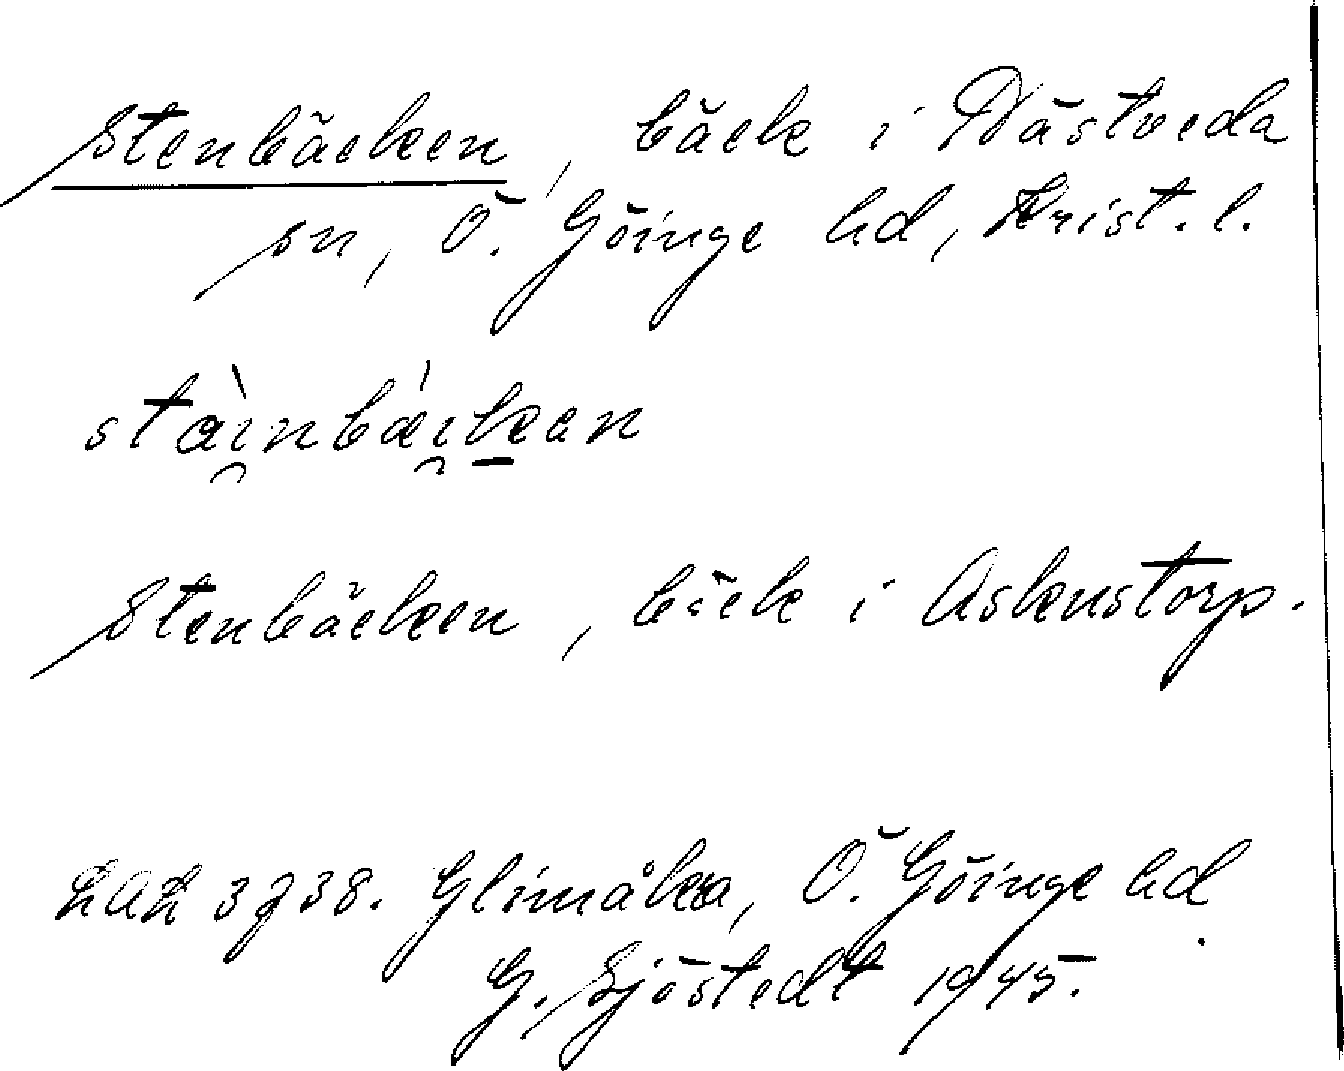 Stenbäcken, bäck i Västveda
sn, Ö. Göinge hd, Krist. l.
stàinbæ̀ikan
Stenbäcken, bäck i Askustorp.
LAL 3738. Glimåkra, Ö. Göinge hd.
G. Sjöstedt 1945.